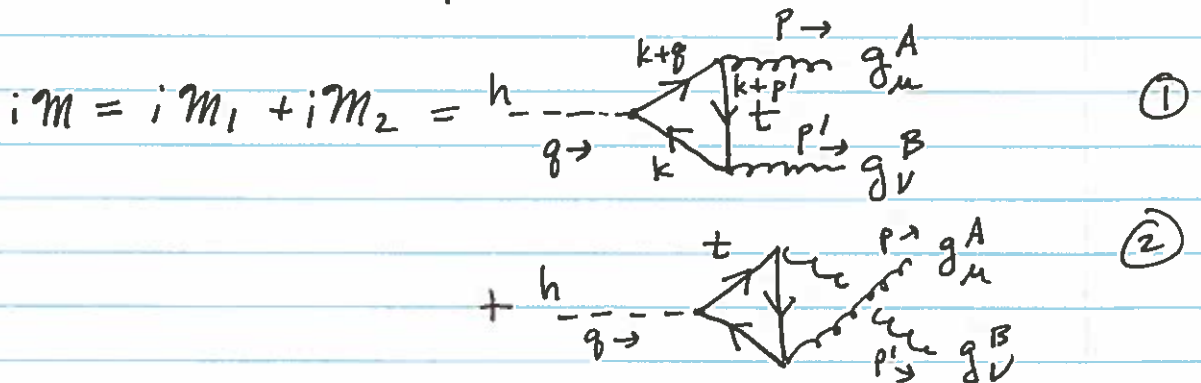 iM = iM₁ + iM₂ = h q→ k+q k k+p' t p→ g_μ^A p'→ g_ν^B ①
+ h q→ t p→ g_μ^A p'→ g_ν^B ②